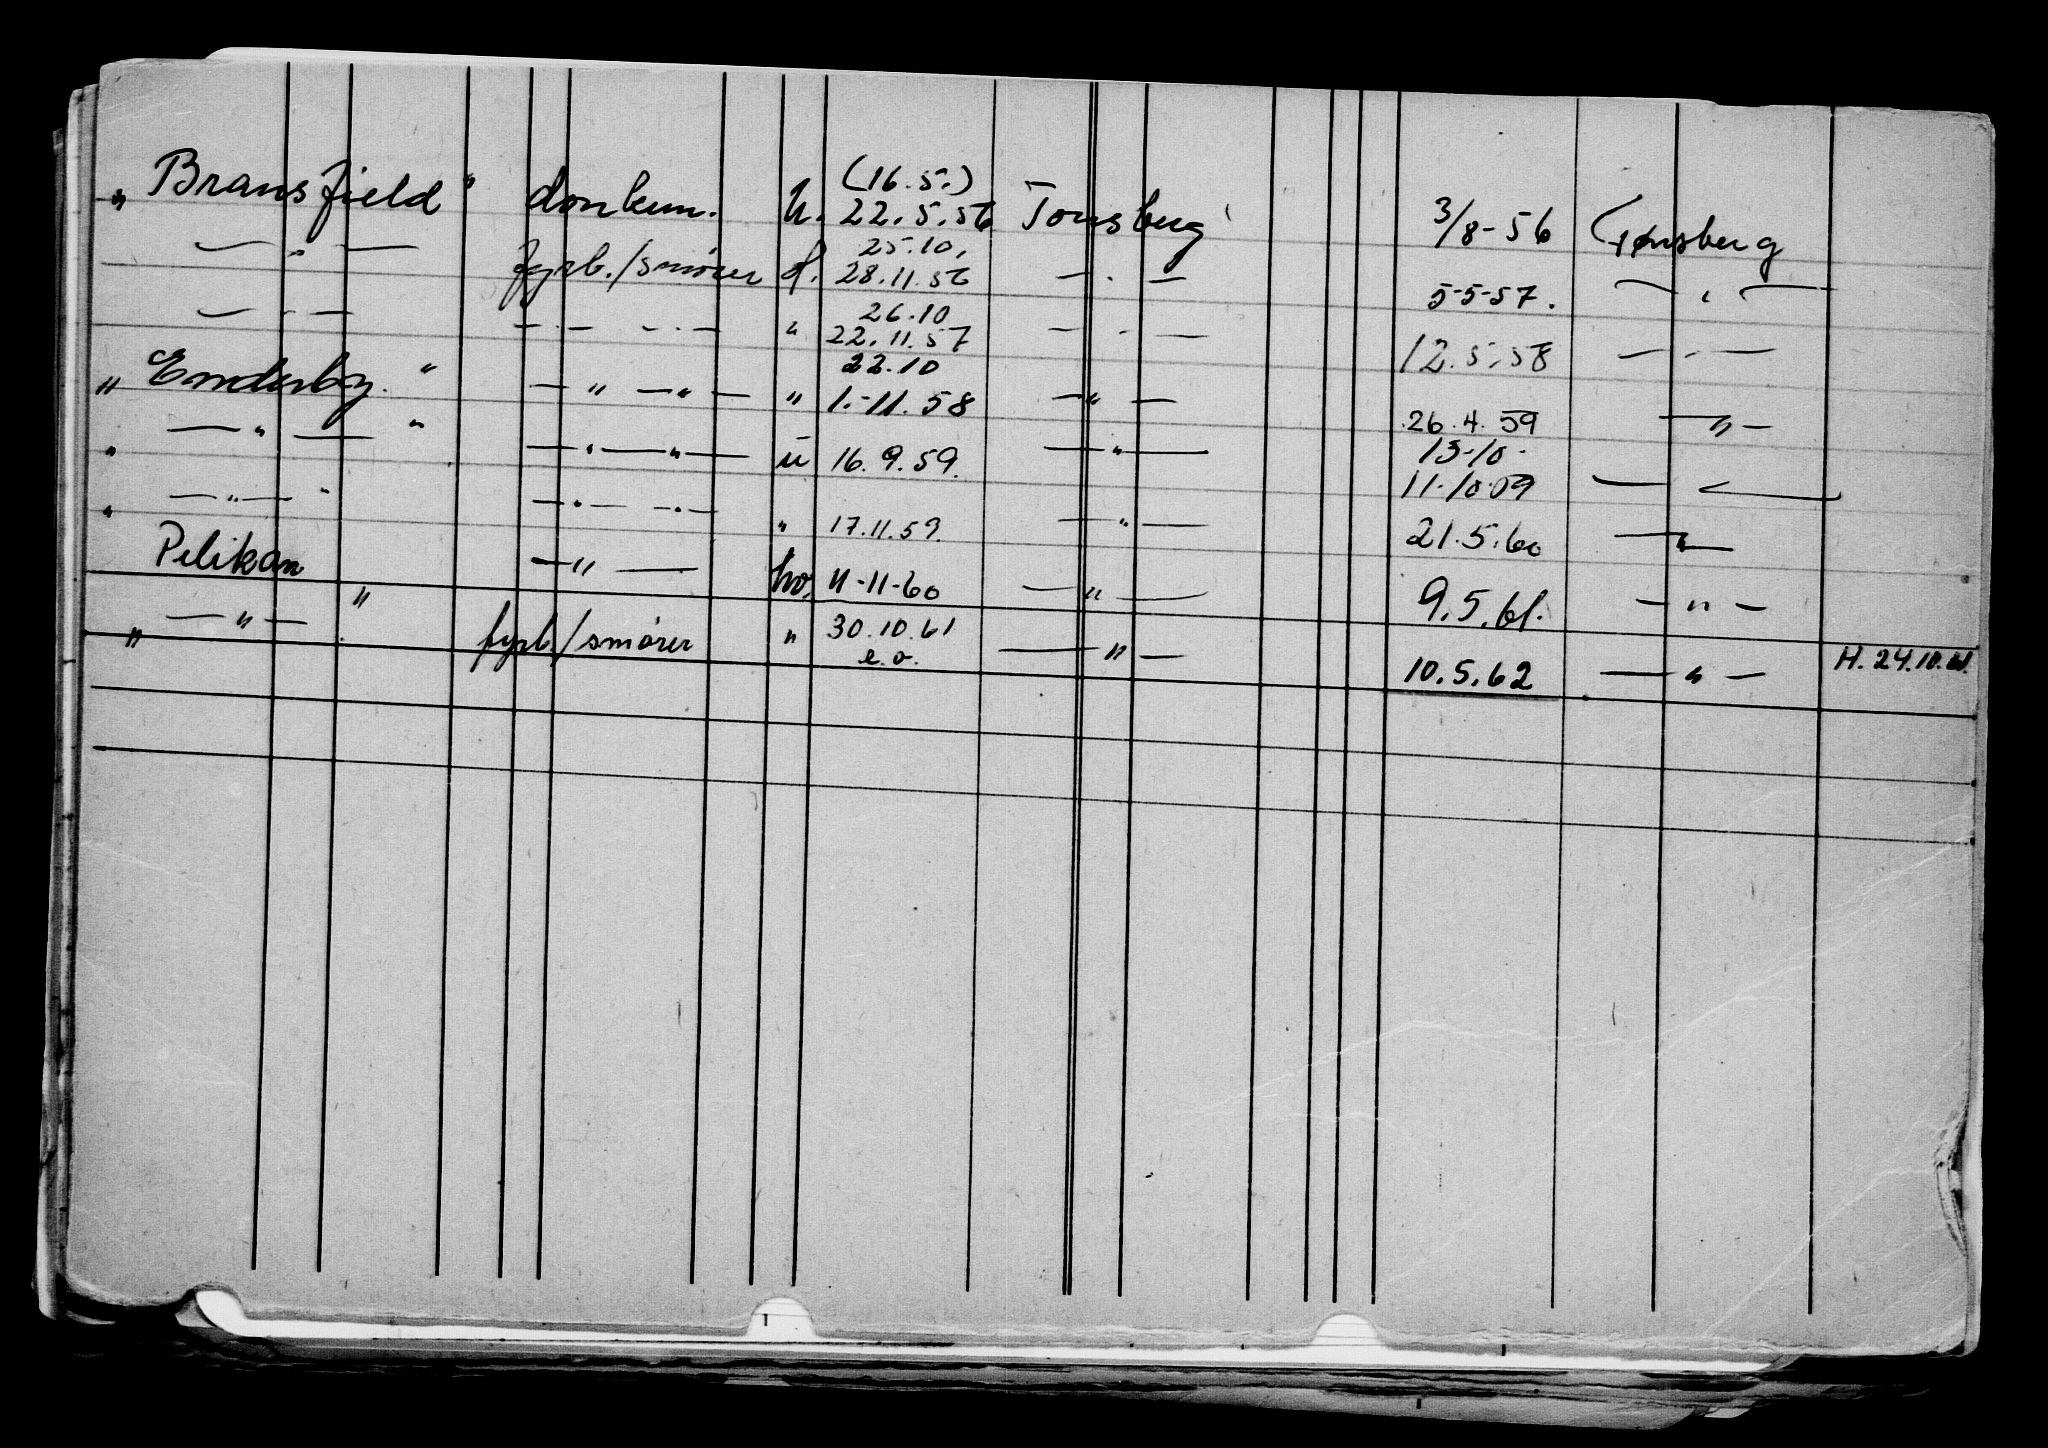 „ Bransfield " donkem. u. (16.5.) 22.5.56 Tønsberg 3/8-56 Tønsberg
— " — fyrb./smører d. 25.10. 28.11.56 — " — 5-5-57. — " —
— " — — " — — " — " 26.10 22.11.57 — " — 12.5.58 — " —
„ Enderby. " — " — " — " 22.10 1.-11.58 — " — 26.4.59 — " —
" — " — " — " — " — u 16.9.59. — " — 13-10- 11-10-59 — " —
" — " — " — " — " — " 17.11.59. — " — 21.5.60 — " —
Pelikan " — " — ho. 11-11-60 — " — 9.5.61. — " —
„ — " — fyrb./smører " 30.10.61 e.o. — " — 10.5.62 — " — H. 24.10.61.